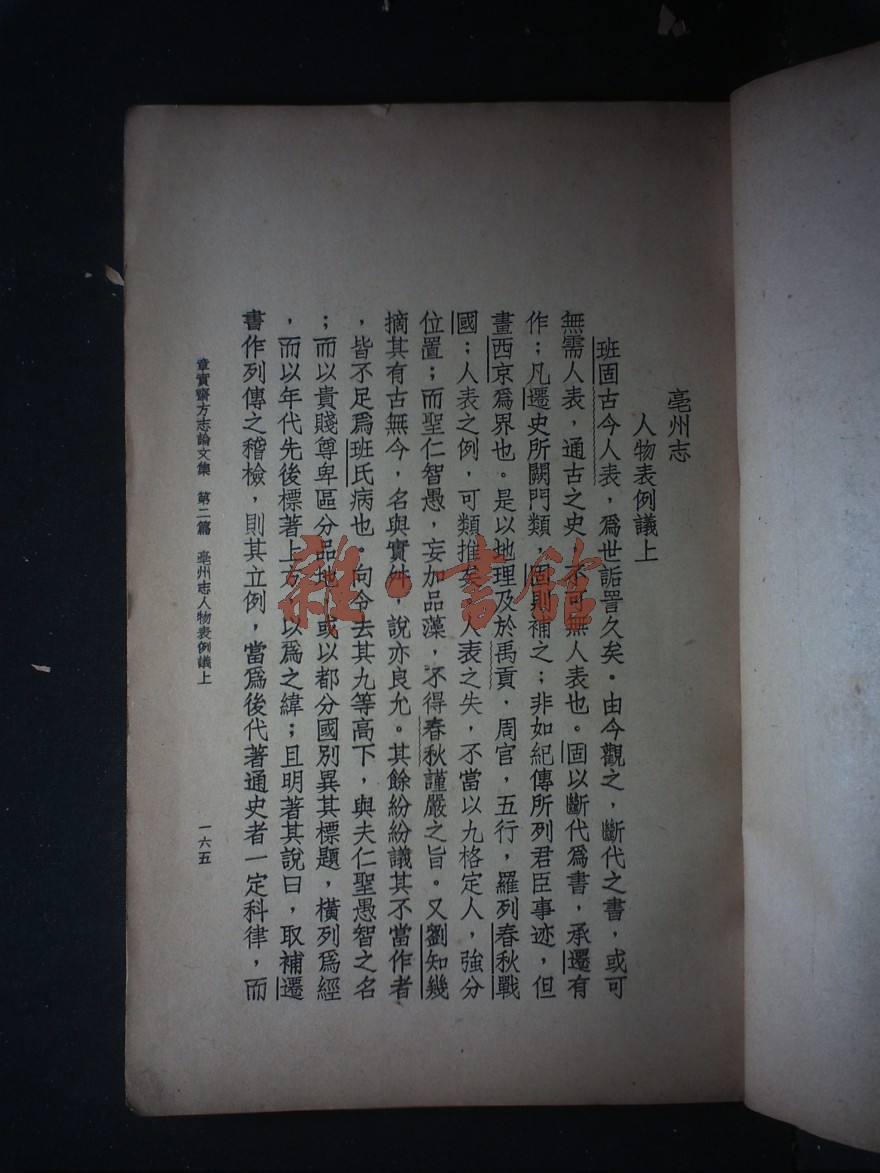 亳州志
人物表例議上
班固古今人表，爲世詬詈久矣。由今觀之，斷代之書，或可
無需人表，通古之史，不可無人表也。固以斷代爲書，承遷有
作；凡遷史所闕門類，固則補之；非如紀傳所列君臣事迹，但
畫西京爲界也。是以地理及於禹貢，周官，五行，羅列春秋戰
國；人表之例，可類推矣。人表之失，不當以九格定人，強分
位置；而聖仁智愚，妄加品藻，不得春秋謹嚴之旨。又劉知幾
摘其有古無今，名與實舛，說亦良允。其餘紛紛議其不當作者
，皆不足爲班氏病也。向令去其九等高下，與夫仁聖愚智之名
；而以貴賤尊卑區分品地，或以都分國別異其標題，橫列爲經
，而以年代先後標著上方，以爲之緯；且明著其說曰，取補遷
書作列傳之稽檢，則其立例，當爲後代著通史者一定科律，而
章實齋方志論文集　第二篇　亳州志人物表例議上
一六五
雜·書館